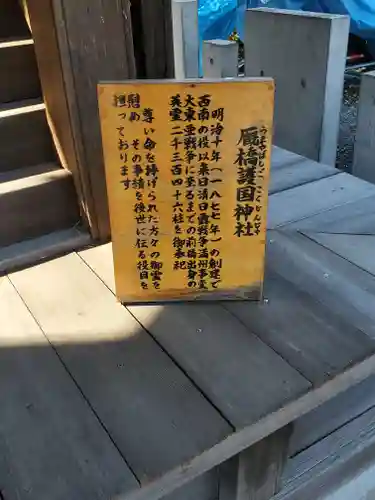 厩橋護国神社
うまやばしごこくじんじゃ
明治十年（１８７７年）の創建で
西南の役以来日清日露戦争満州事変
大東亜戦争に至るまでの前橋出身の
英霊二千三百四十六柱を御奉祀
尊い命を捧げられた方々の御霊を
慰め　その事績を後世に伝る役目を
担っております